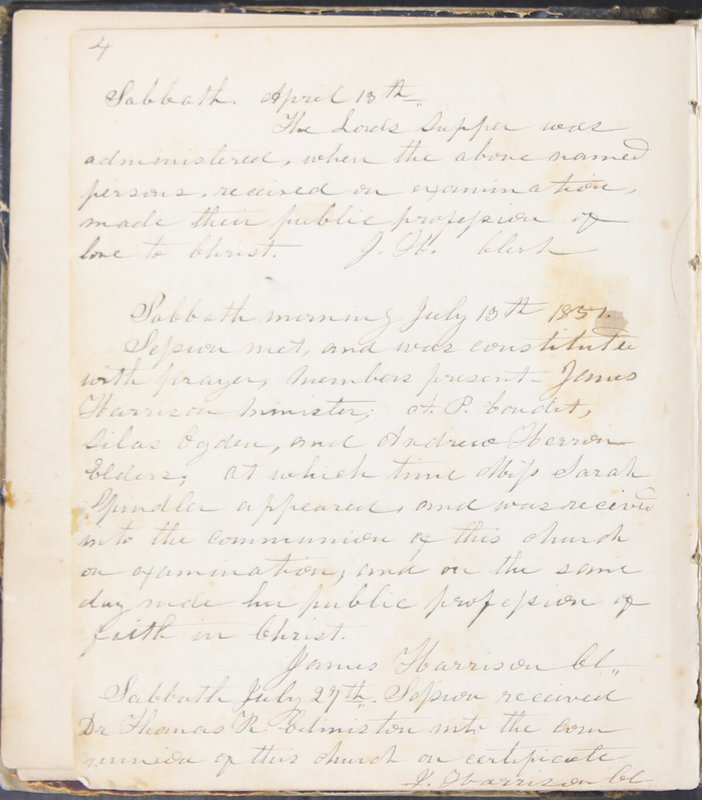 4
Sabbath. April 13th
The Lords Supper was
administered, when the above named
persons, received on examination,
made their public profession of
love to Christ. J. H. Clerk
Sabbath morning July 13th 1851.
Session met, and was constituted
with prayer, members present - James
Harrison Minister; A. P. Condit,
Silas Ogden, and Andrew Herron
Elders; at which time Miss Sarah
Spindler appeared, and was received
into the communion of this church
on examination; and on the same
day made her public profession of
faith in Christ.
James Harrison Cl,,
Sabbath July 27th. Session received
Dr Thomas R Edmiston into the com
munion of this church on certificate
J. Harrison Cl